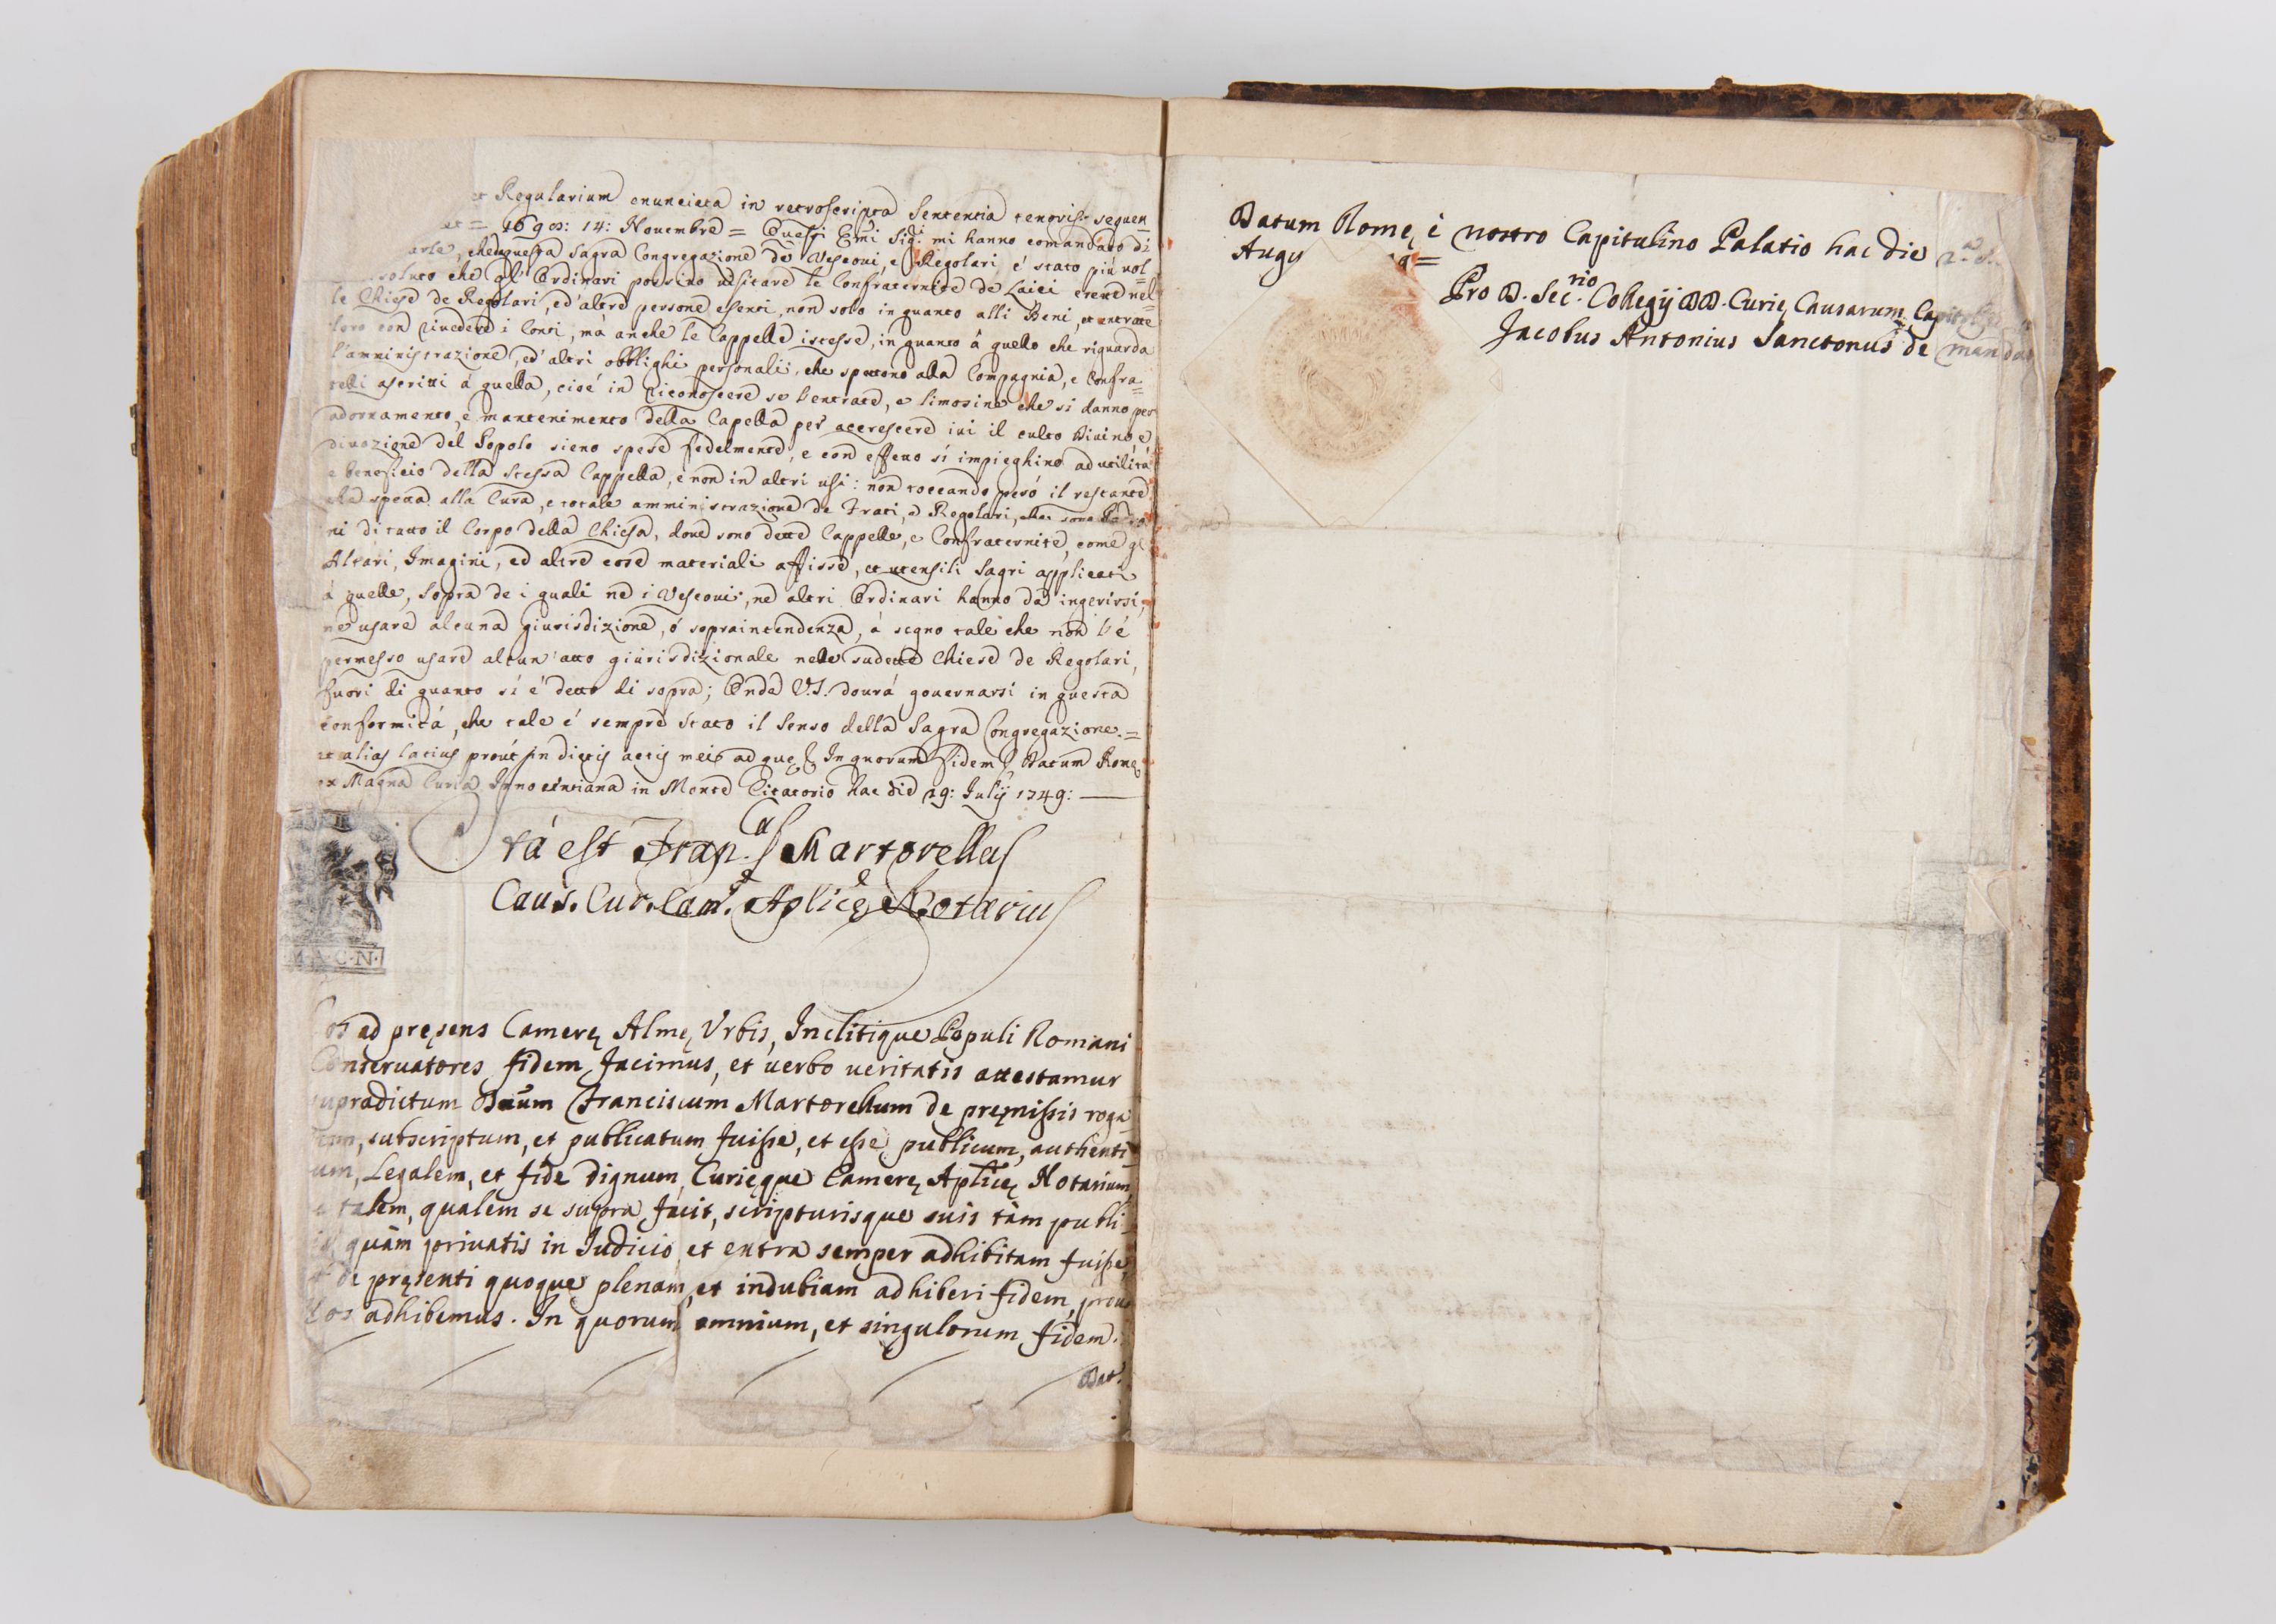 et Regularium enunciata in retroscripta Sententia tenoris seguen
et = 1690: 14: Novembre = Questi Emi Sig.ri mi hanno comandato di
che questa Sagra Congregazione de Vescovi, e Regolari é stato piú vol=
soluto che gl' Ordinari possino visitare le Confraternite de Laici erette nel=
le Chiese de Regolari, ed' altre persone esenti, non solo in quanto alli Beni, et entrate
loro con rivedere i Conti, ma anche le Cappelle istesse, in quanto á quello che riguarda
l'amministrazione, ed' altri obblighi personali, che spettono alla Compagnia, e Confra=
telli ascritti á quella, cioé in riconoscere se l'entrate, e limosine che si danno per
adornamento, e mantenimento della Capella per accrescere ivi il culto Divino, e
divozione del Popolo sieno spese fedelmente, e con effetto si impieghino ad utilitá
e beneficio della stessa Cappella, e non in altri usi: non toccando peró il restante
che spetta alla Cura, e totale amministrazione de Frati, e Regolari, che sono
ni di tutto il Corpo della Chiesa, dove sono dette Cappelle, e Confraternite, come gl'
Altari, Imagini, ed altre cose materiali affisse, et utensili Sagri applicati
á quelle, sopra de i quali ne i Vescovi, ne altri Ordinari hanno da ingerirsi,
ne usare alcuna giurisdizione, ó sopraintendenza, á segno tale che non l'é
permesso usare alcun' atto giurisdizionale nelle sudette Chiese de Regolari,
fuori di quanto si é detto di sopra; Onde V.S. dovrá governarsi in questa
conformitá, che tale é sempre stato il senso della Sagra Congregazione.=
et alias latius prout in dictis actis meis ad que In quorum fidem Datum Rome
ex Magna Curia Innocentiana in Monte Citatorio hac die 29: Julij 1749:
Ita est Fran.cus Martorellus
Caus. Cur. Cam.e Aplice Notarius
A.C.N.
Nos ad presens Camerę Almę Urbis, Inclitique Populi Romani
Conservatores fidem facimus, et verbo veritatis attestamur
supradictum Dnum Franciscum Martorellum de premissis roga
tum, subscriptum, et publicatum fuisse, et esse publicum, authenti
cum, Legalem, et fide dignum, Curięque Camerę Aplicę Notarium,
e talem, qualem se supra facit, scripturisque suis tàm publi
cis, quàm privatis in Judicio, et extra semper adhibitam fuisse,
et de pręsenti quoque plenam, et indubiam adhiberi fidem, prout
Nos adhibemus. In quorum omnium, et singulorum fidem.
Dat.
Datum Romę è nostro Capitulino Palatio hac die 2.a
Augu
Pro D. Sec.rio Collegij DD. Curię Causarum
Jacobus Antonius Sanctonus de